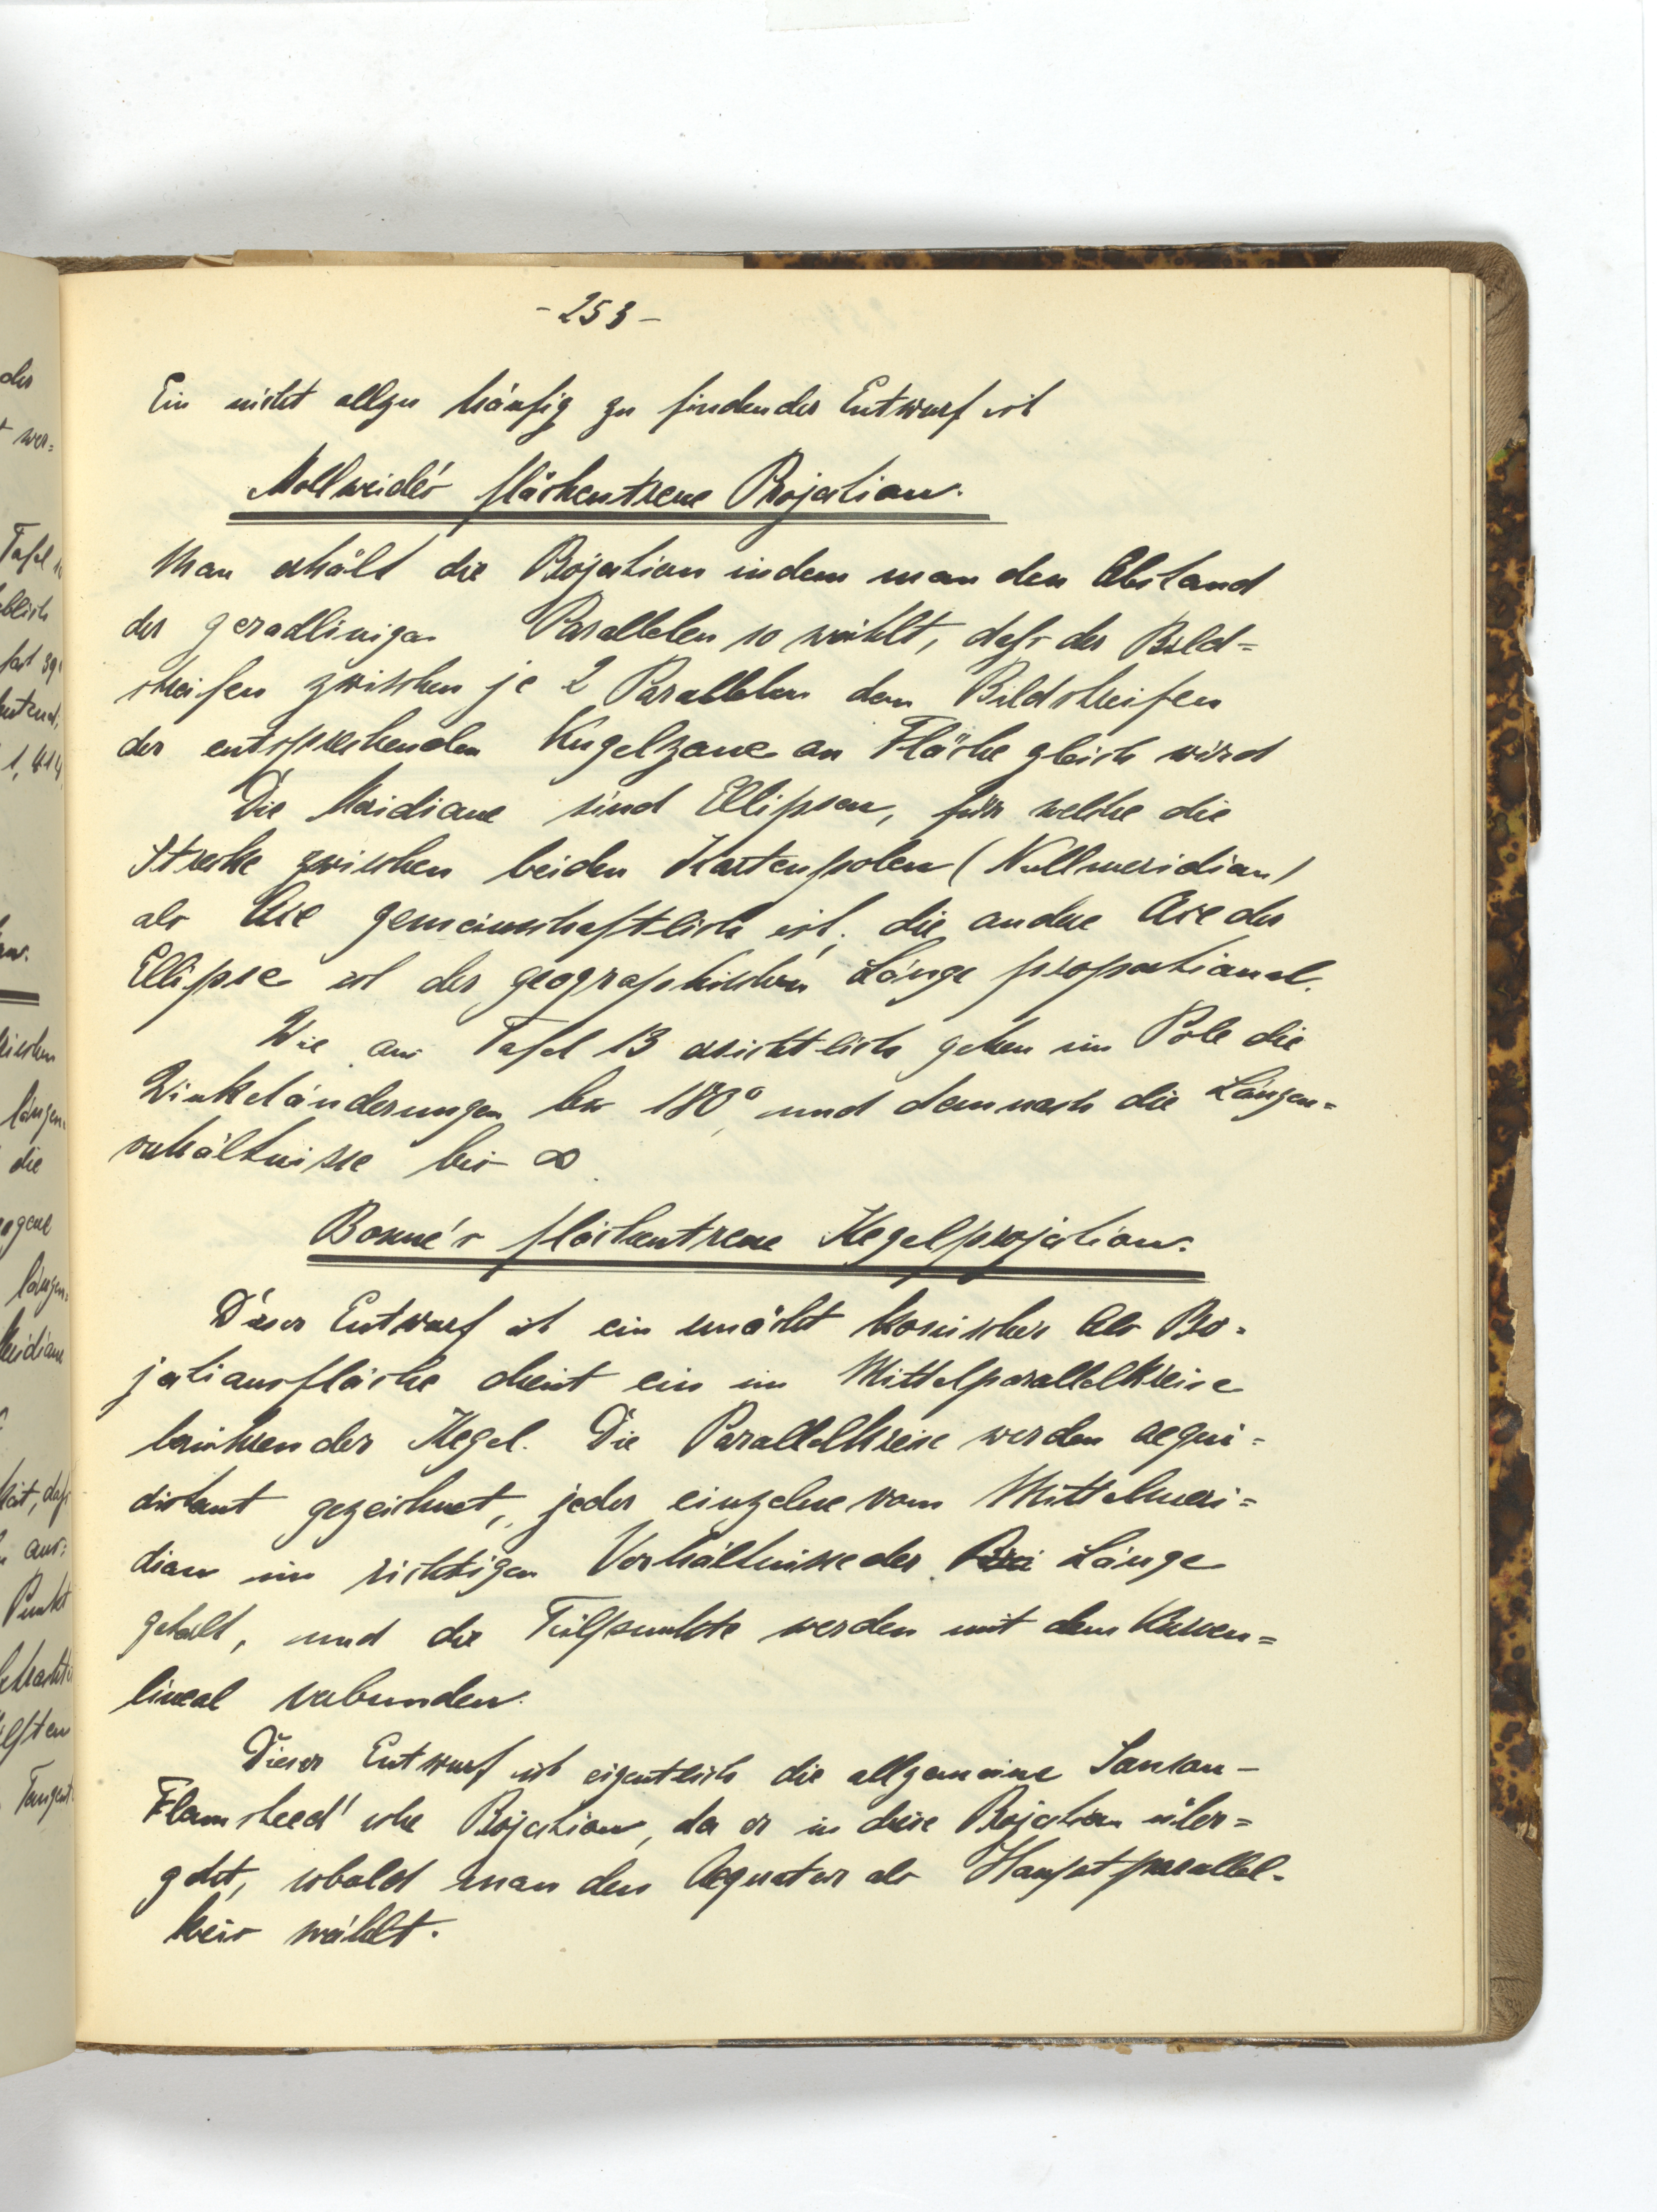 - 253 -
Ein nicht allzu häufig zu findender Entwurf ist
Mollweide's flächentreue Projection.
Man erhält die Projection indem man den Abstand
der geradlinigen Parallelen so wählt, daſs der Bild=
streifen zwischen je 2 Parallelen dem Bildstreifen
der entsprechenden Kugelzone an Fläche gleich wird
Die Meridiane sind Ellipsen, für welche die
Strecke zwischen beiden Kartenpolen (Nullmeridian)
als Axe gemeinschaftlich ist, die andere Axe der
Ellipse ist der geographischen Länge proportional.
Wie aus Tafel 13 ersichtlich gehen im Pole die
Winkeländerungen bis 180°, und demnach die Längen=
verhältnisse bis ∞.
Bonne's flächentreue Kegelprojection.
Dieser Entwurf ist ein unächt konischer Als Pro=
jectionsfläche dient ein im Mittelparallelkreise
berührender Kegel. Die Parallelkreise werden aequi=
distant gezeichnet, jeder einzelne vom Mittelmeri=
dian im richtigen Verhältnisse der Länge
geteilt, und die Teilpunkte werden mit dem Kurven=
lineal verbunden.
Dieser Entwurf ist eigentlich die allgemeine Sanson-
Flamsteed'sche Projection, da er in diese Projection über=
geht, sobald man den Aequator als Hauptparallel-
kreis wählt.
der
wer=
Tafel
1,414
längen=
die
daſs
aus=
Punkt